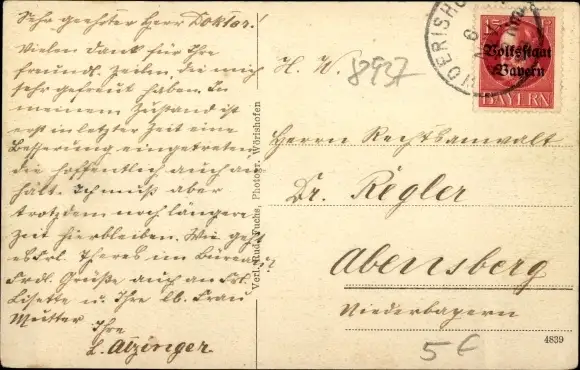 Sehr geehrter Herr Doktor!
Vielen Dank für Ihre
freundl. Zeilen, die mich
sehr gefreut haben. In
meinem Zustand ist
erst in letzter Zeit eine
Besserung eingetreten,
die hoffentlich auch an-
hält. Ich muß aber
trotzdem noch längere
Zeit hierbleiben. Wie geht
es Frl. Theres im Büreau?
Frdl. Grüße auch an Frl.
Lisette u. Ihre lb. Frau
Mutter.
Ihre
L. Atzinger
Verl. Rud. Fuchs, Photogr. Wörishofen
H. W.
8937
WÖRISHO
15
Volksstaat
Bayern
BAYERN
Herrn Rechtsanwalt
Dr. Regler
Abensberg
Niederbayern
4839
5 €